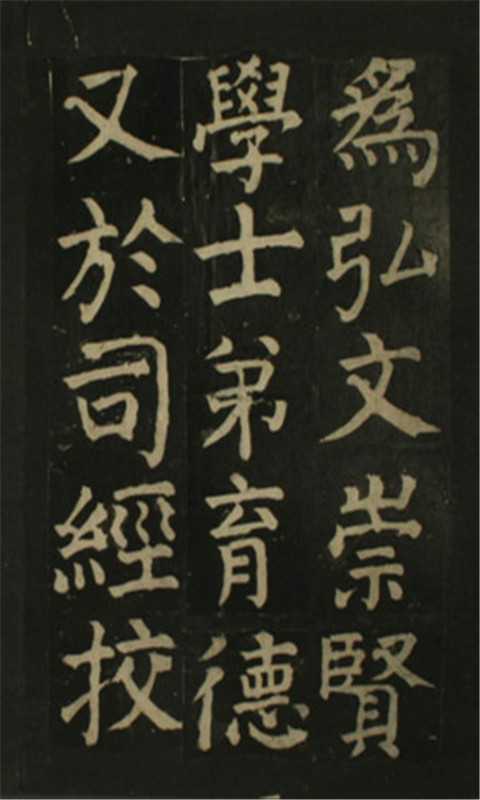 爲弘文崇賢
學士弟育德
又於司經挍